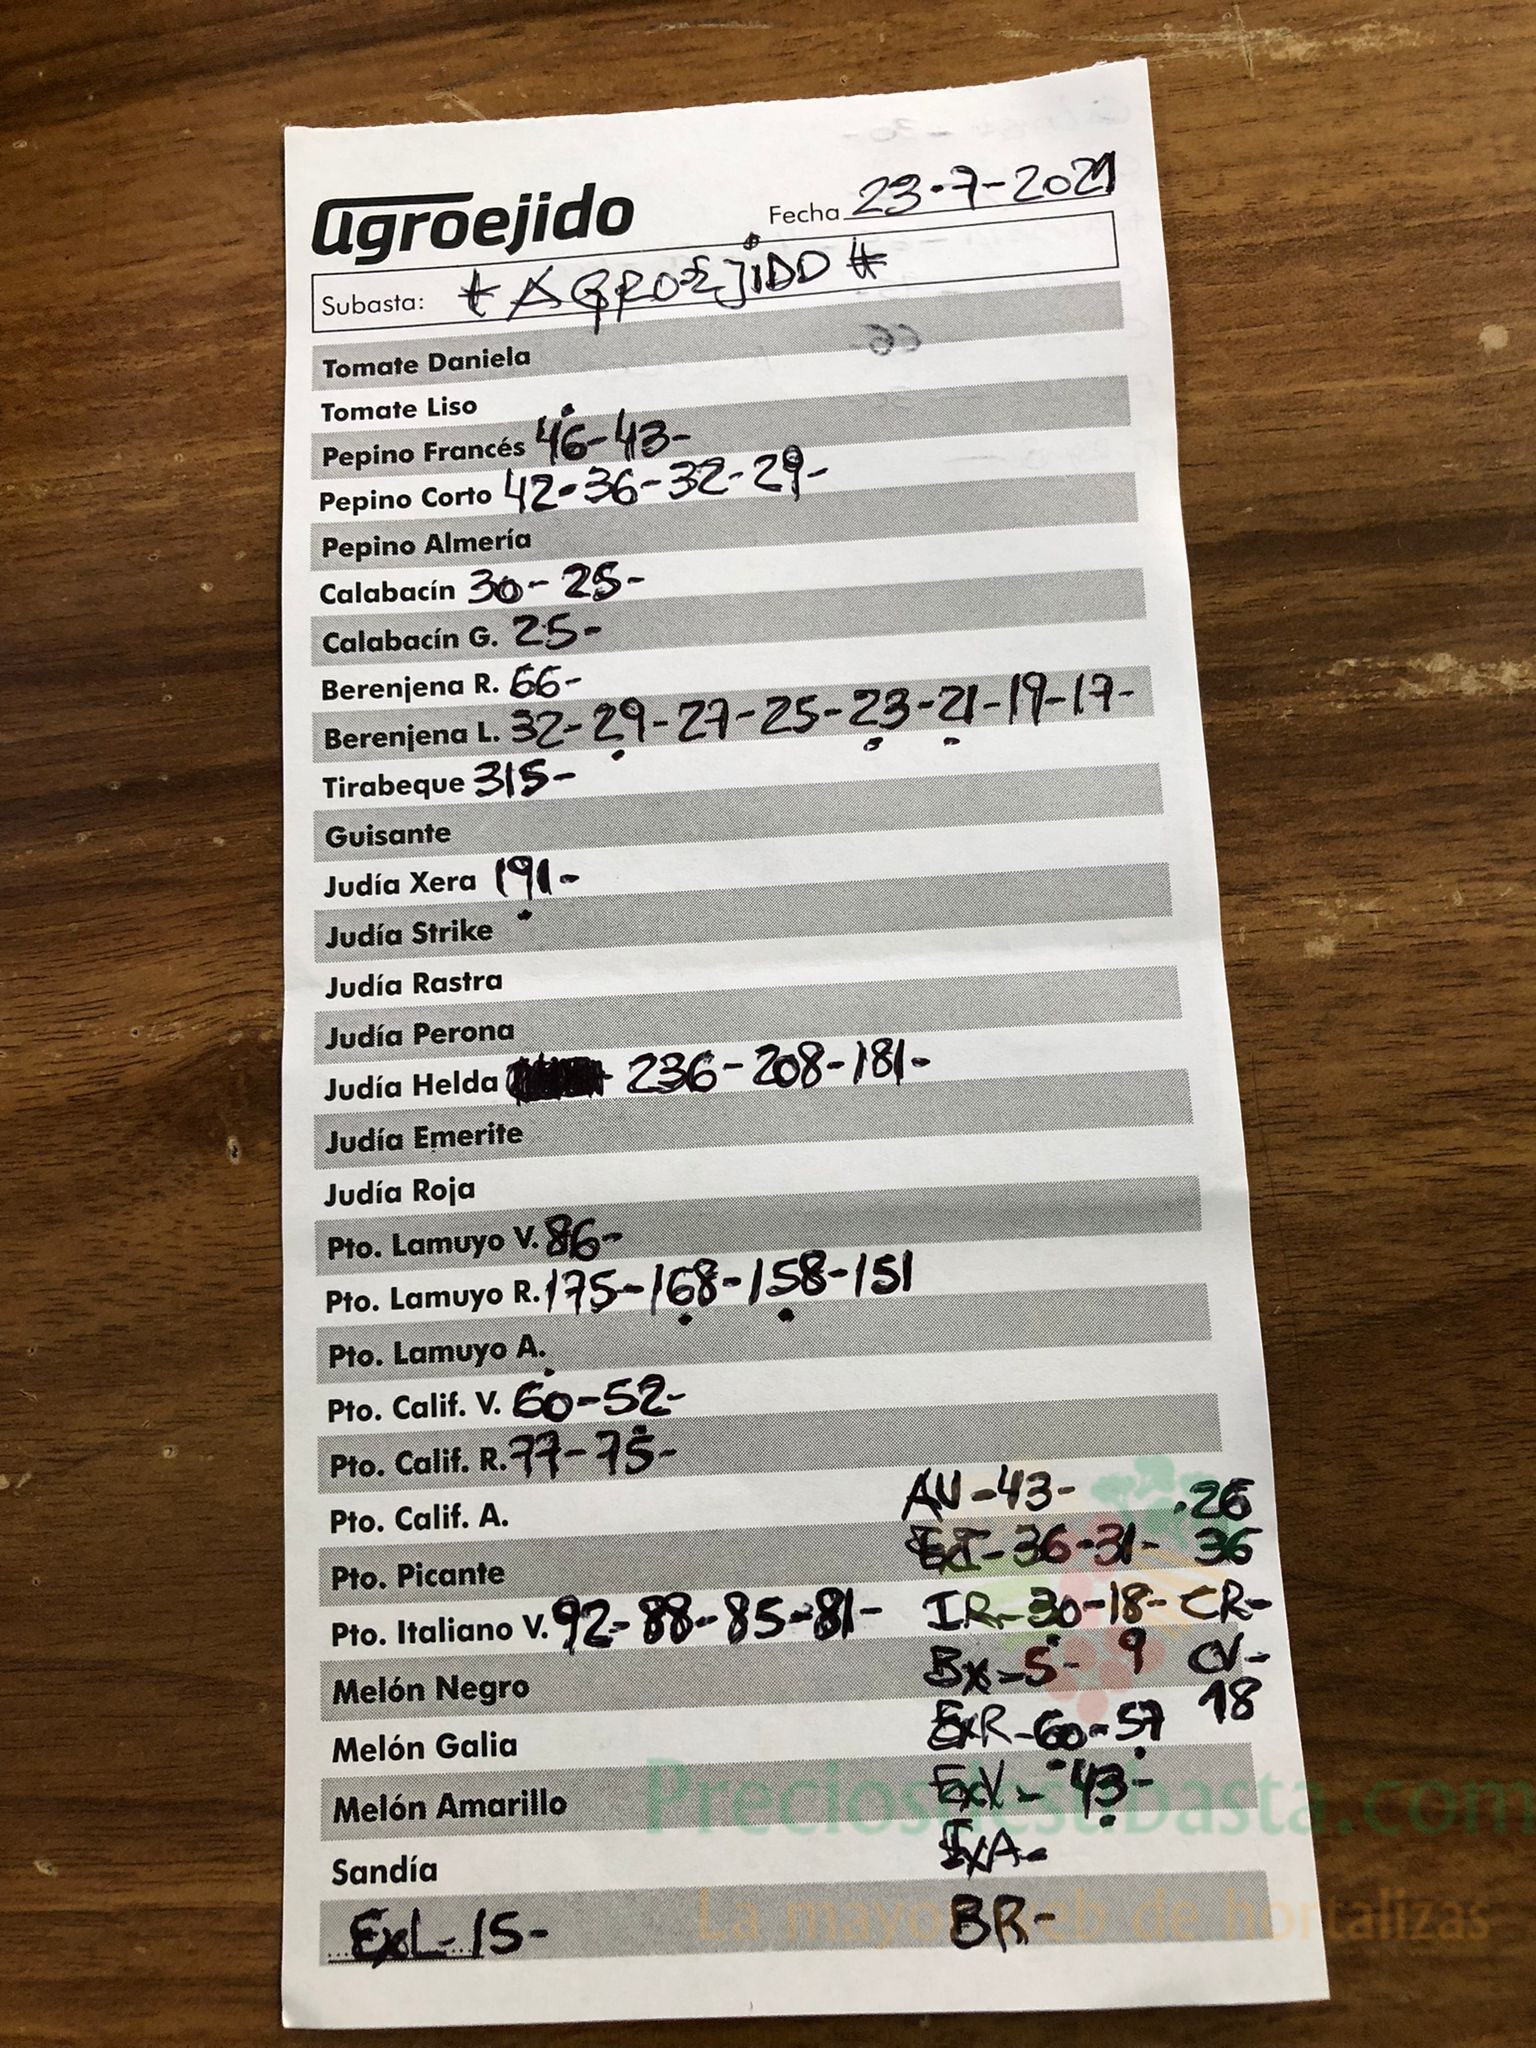 agroejido
Fecha 23-7-2021
Subasta: * AGROEJIDO *
Tomate Daniela
Tomate Liso
Pepino Francés 46-43-
Pepino Corto 42-36-32-29-
Pepino Almería
Calabacín 30-25-
Calabacín G. 25-
Berenjena R. 66-
Berenjena L. 32-29-27-25-23-21-19-17-
Tirabeque 315-
Guisante
Judía Xera 191-
Judía Strike
Judía Rastra
Judía Perona
Judía Helda 236-208-181-
Judía Emerite
Judía Roja
Pto. Lamuyo V. 86-
Pto. Lamuyo R. 175-168-158-151
Pto. Lamuyo A.
Pto. Calif. V. 60-52-
Pto. Calif. R. 77-75-
Pto. Calif. A.
AN-43- 26
Pto. Picante
36-31- 36
Pto. Italiano V. 92-88-85-81-
IR-30-18- CR-
Melón Negro
Bx-5- 9 CV-
Melón Galia
ExR-60-57 18
Melón Amarillo
ExV-43-
Sandía
ExA-
ExL-15-
BR-
Preciosdesubasta.com
La mayor web de hortalizas